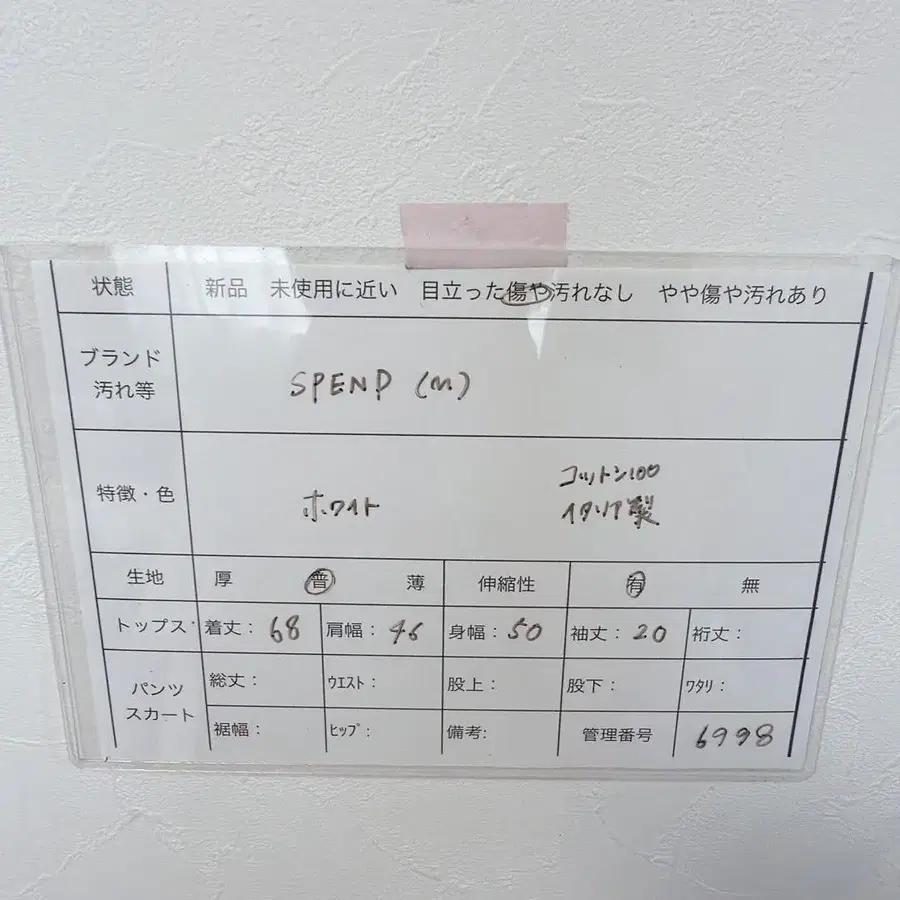 状態 新品 未使用に近い 目立った傷や汚れなし やや傷や汚れあり
ブランド
汚れ等
SPEND (m)
特徴・色
ホワイト
コットン100
イタリア製
生地 厚 普 薄 伸縮性 有 無
トップス 着丈: 68 肩幅: 46 身幅: 50 袖丈: 20 裄丈:
パンツ
スカート
総丈: ウエスト: 股上: 股下: ワタリ:
裾幅: ヒップ: 備考: 管理番号 6998